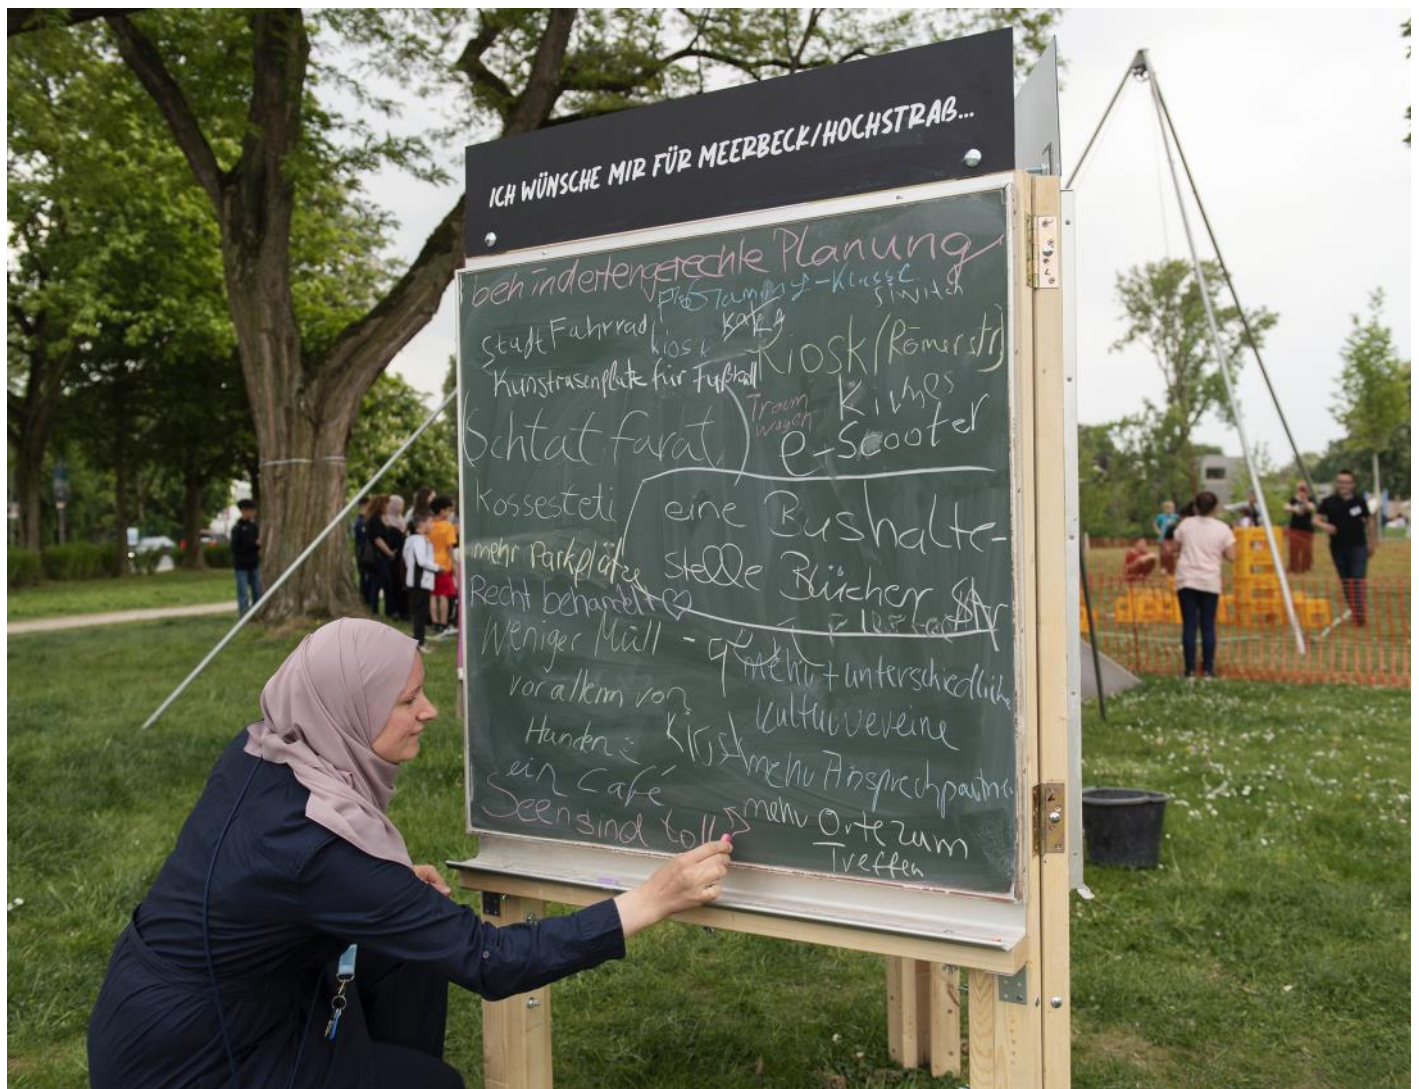 ICH WÜNSCHE MIR FÜR MEERBECK/HOCHSTRAß...
behindertengerechte Planung
Klasse
Switch
Stadt Fahrrad
kiosk
Kiosk (Römerstr)
für Fußball
Traum
wagen
Schtat farat
e-Scooter
Kossesteti
eine Bushalte-
stelle Bücher Str
mehr Parkplätze
Recht behandelt ♡
Weniger Müll -
vor allem von
Hunden
mehr + unterschiedliche
Kulturvereine
Kiosk
mehr Ansprechpartne
ein Café
Seen sind toll
mehr Orte zum
Treffen